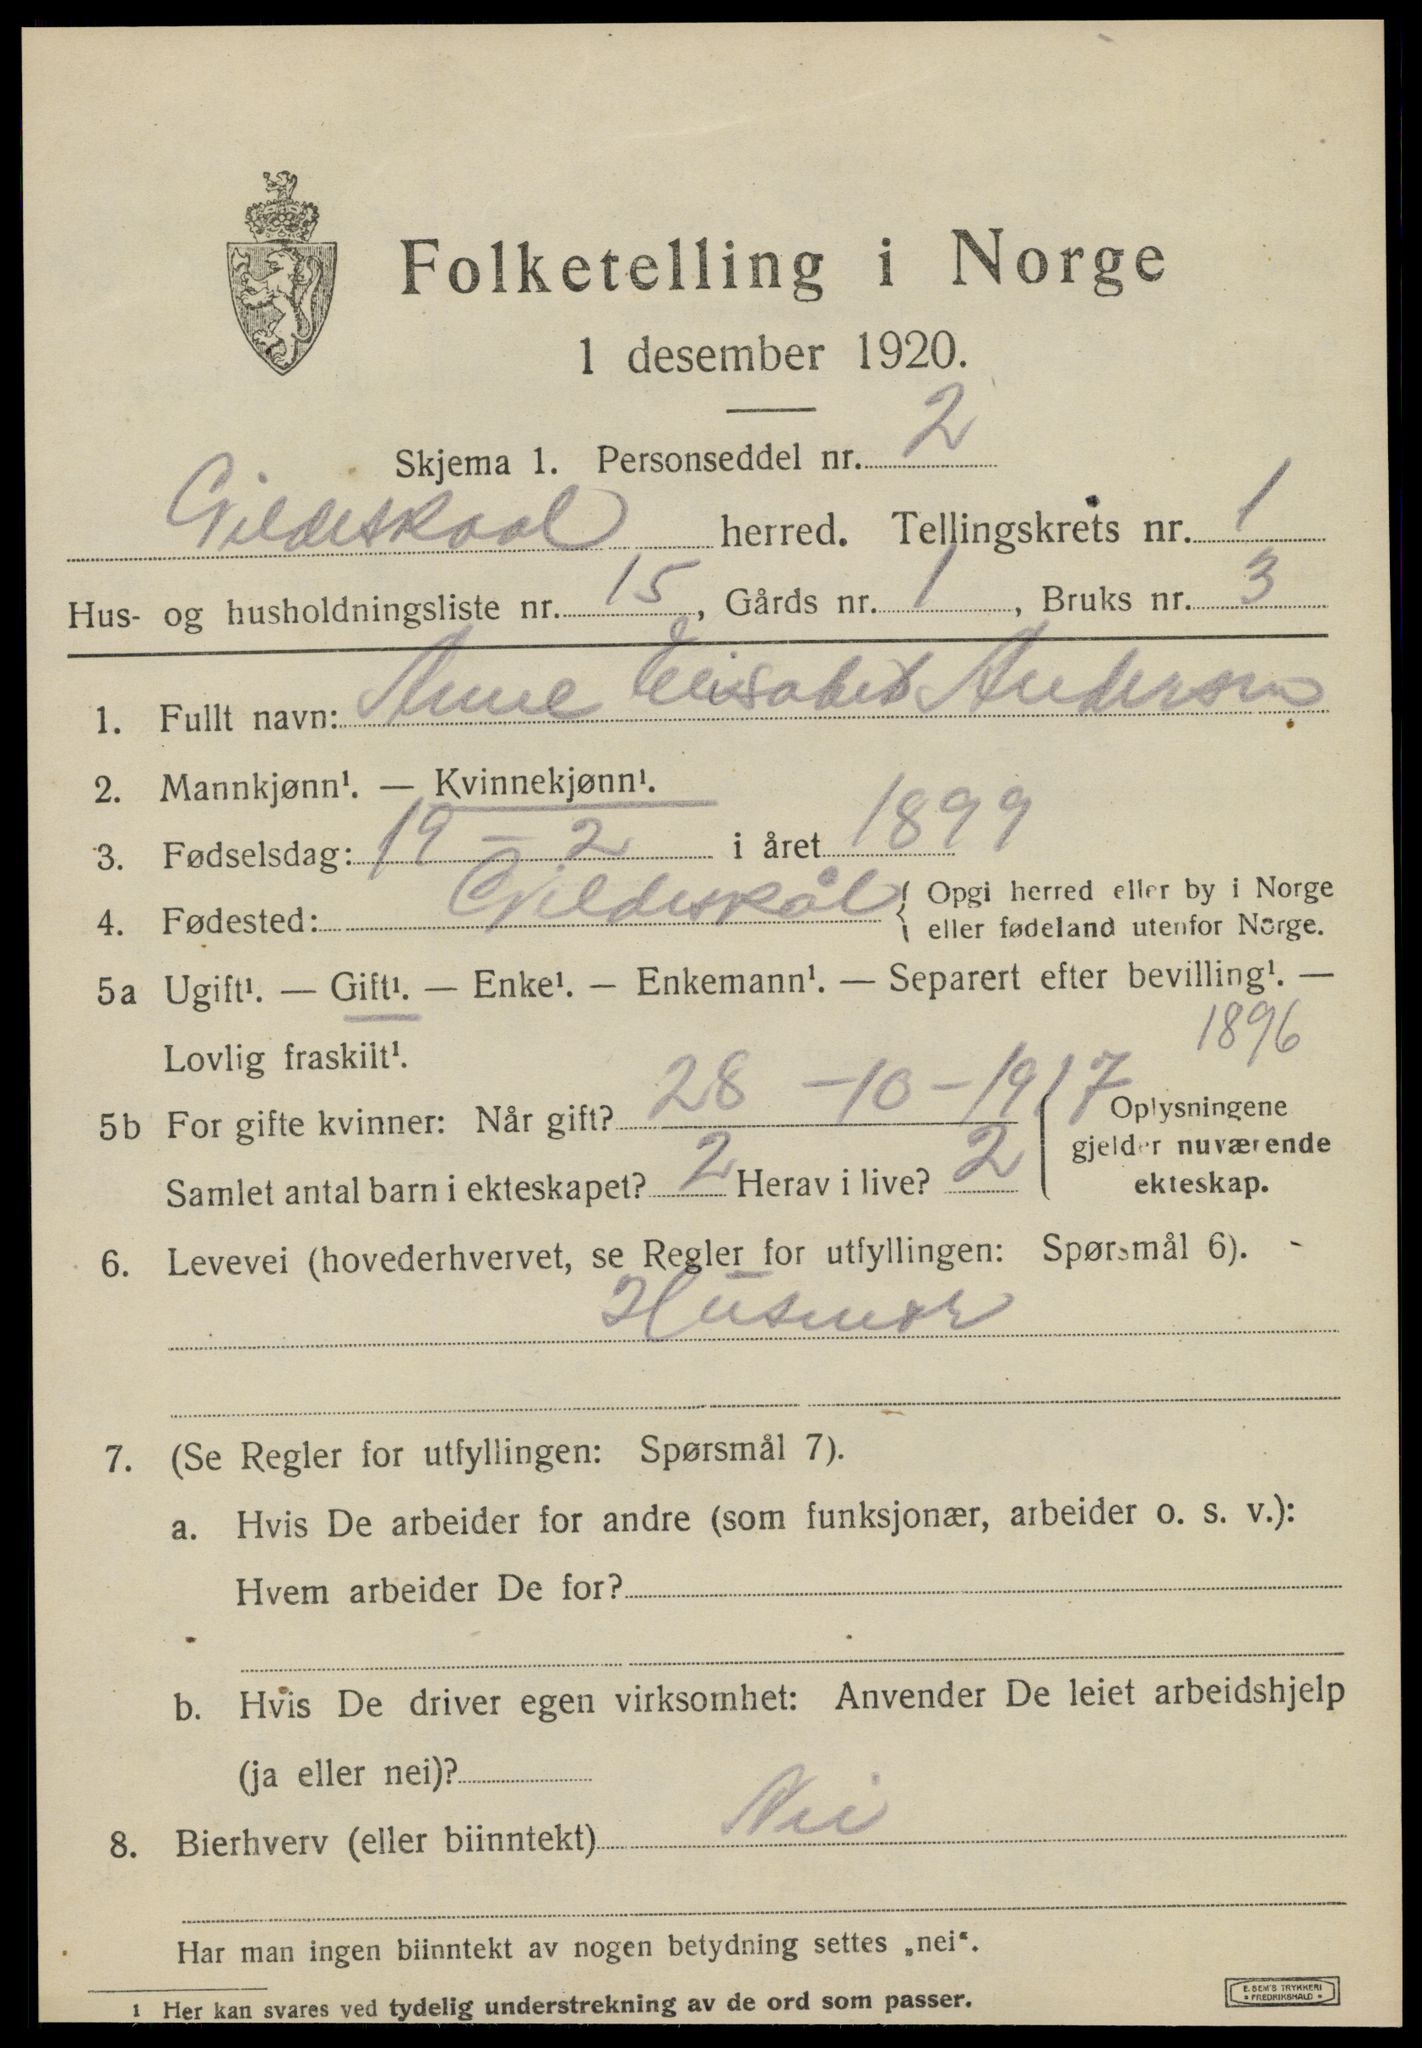 Folketelling i Norge
1 desember 1920.
Skjema 1. Personseddel nr. 2
Gildeskaal herred. Tellingskrets nr. 1
Hus- og husholdningsliste nr. 15, Gårds nr. 1, Bruks nr. 3
1. Fullt navn: Anne Elisabet Andersen
2. Mannkjønn¹. — Kvinnekjønn¹.
3. Fødselsdag: 19 - 2 i året 1899
4. Fødested: Gildeskål { Opgi herred eller by i Norge
eller fødeland utenfor Norge.
5a Ugift¹. — Gift¹. — Enke¹. — Enkemann¹. — Separert efter bevilling¹. —
Lovlig fraskilt¹. 1896
5b For gifte kvinner: Når gift? 28 - 10 - 1917 { Oplysningene
gjelder nuværende
Samlet antal barn i ekteskapet? 2 Herav i live? 2 ekteskap.
6. Levevei (hovederhvervet, se Regler for utfyllingen: Spørsmål 6).
Husmor
7. (Se Regler for utfyllingen: Spørsmål 7).
a. Hvis De arbeider for andre (som funksjonær, arbeider o. s. v.):
Hvem arbeider De for?
b. Hvis De driver egen virksomhet: Anvender De leiet arbeidshjelp
(ja eller nei)?
8. Bierhverv (eller biinntekt) Nei
Har man ingen biinntekt av nogen betydning settes „nei“.
1 Her kan svares ved tydelig understrekning av de ord som passer.
E. SEM'S TRYKKERI
FREDRIKSHALD